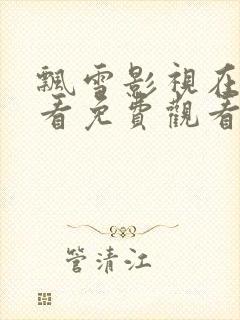 飄雪影視在
看免費觀看
管清江